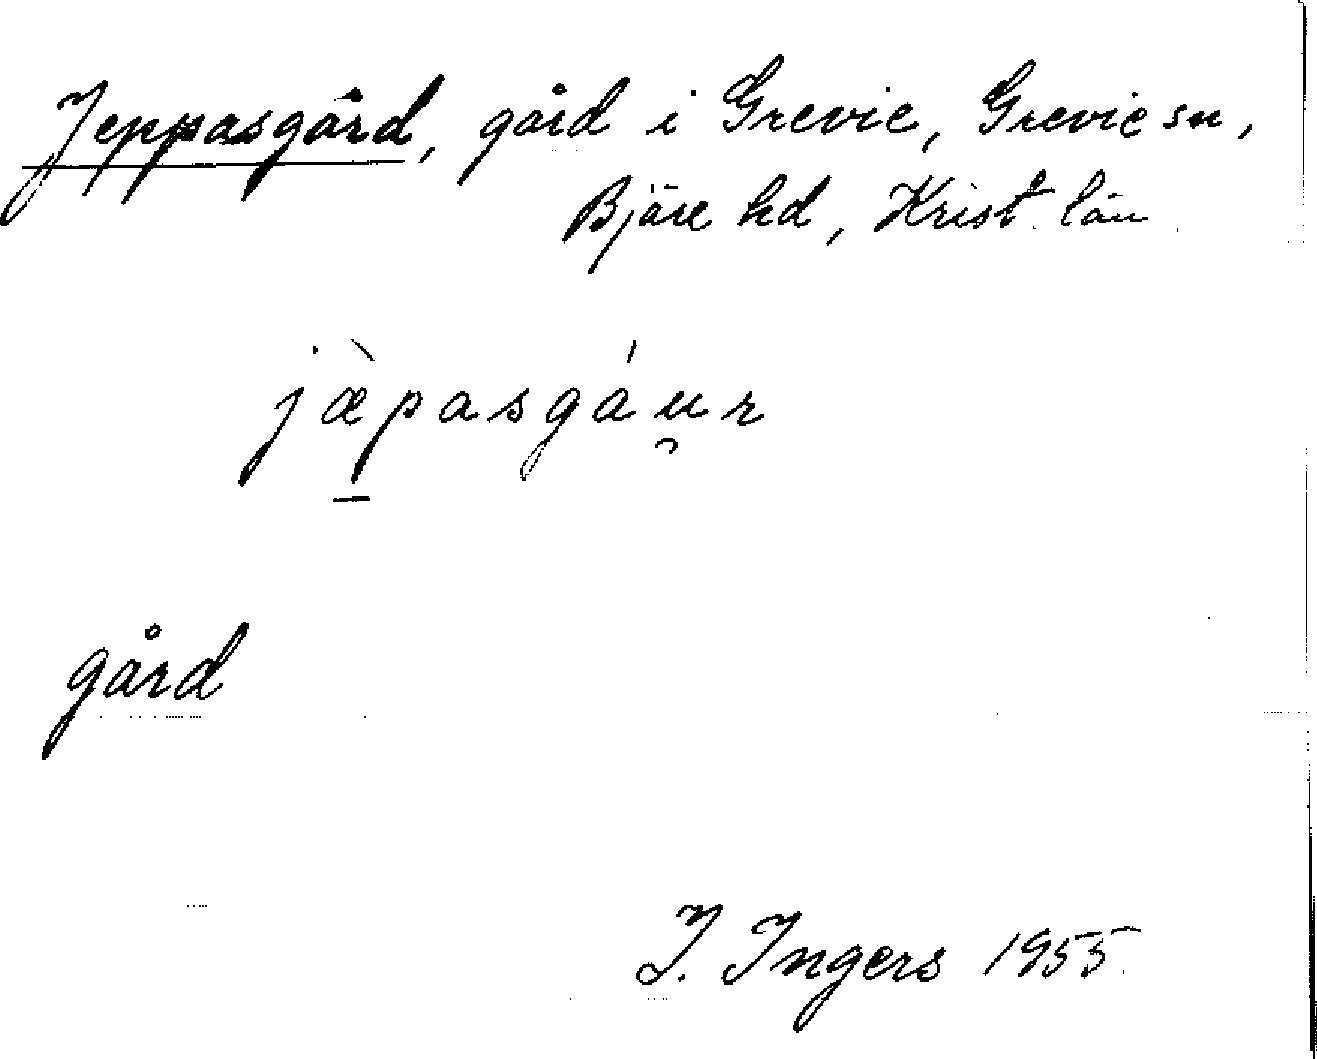 Jeppasgård, gård i Grevie, Grevie sn,
Bjäre hd, Krist. län
jæ̀pasgáu̯r
gård
I. Ingers 1955